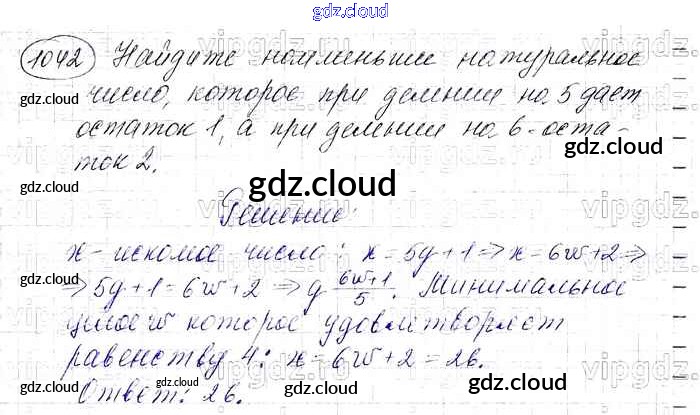 gdz.cloud
1042 Найдите наименьшее натуральное
gdz.cloud число, которое при делении на 5 дает
остаток 1, а при делении на 6 - оста-
ток 2. gdz.cloud
gdz.cloud
Решение:
x - искомое число: x = 5y + 1 ⇒ x = 6w + 2 ⇒
gdz.cloud
⇒ 5y + 1 = 6w + 2 ⇒ y \frac{6w+1}{5}. Минимальное
целое w которое удовлетворяет
gdz.cloud
равенству 4: x = 6w + 2 = 26.
Ответ: 26.
gdz.cloud gdz.cloud